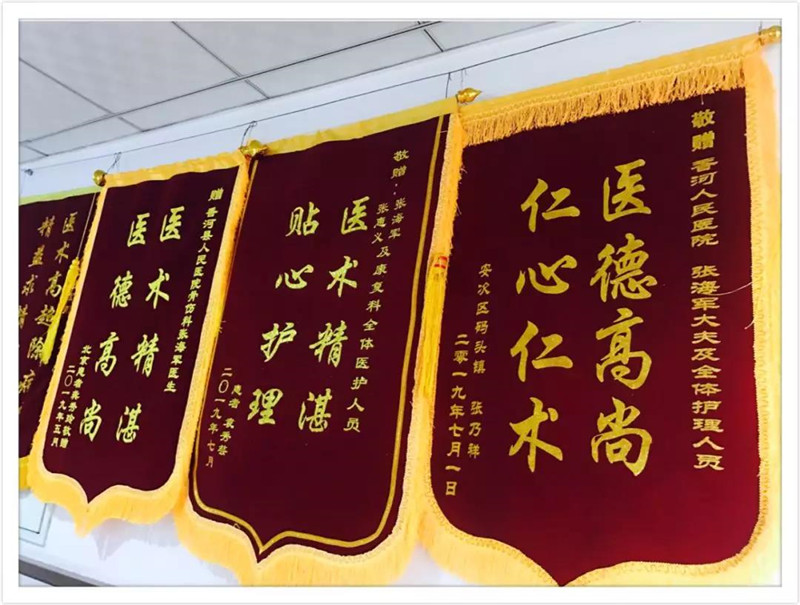 敬赠 香河人民医院 张海军大夫及全体护理人员
医德高尚
仁心仁术
安次区码头镇 张乃祥
二零一九年七月一日
敬赠：张海军
张惠义及康复科全体医护人员
医术精湛
贴心护理
患者 袁秀
二〇一九年七月
赠 香河县人民医院骨伤科张海军医生
医术精湛
医德高尚
北京患者 秀玲敬赠
二〇一九年五月
医术高超除
精益求精